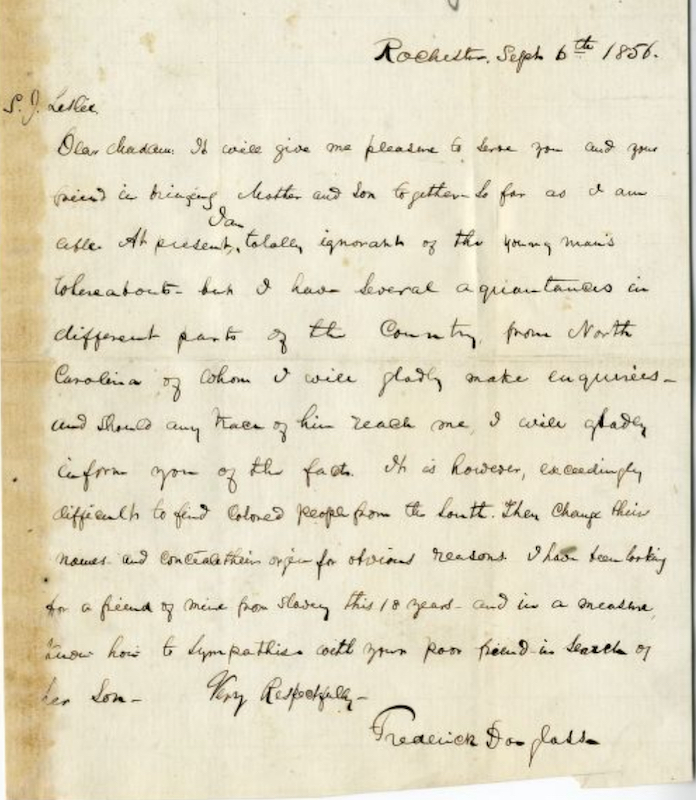 Rochester, Sept 6th 1856.
S. J. Leslie.
Dear Madam: It will give me pleasure to serve you and your
friend in bringing Mother and Son together So far as I am
able. At present, I am totally ignorant of the young man's
whereabouts - but I have several aquantances in
different parts of the Country, from North
Carolina of whom I will gladly make enquiries -
and should any trace of him reach me, I will gladly
inform you of the fact. It is however, exceedingly
difficult to find Colored people from the South. They change their
names and conceal their orjin for obvious reasons. I have been looking
for a friend of mine from Slavery this 18 years - and in a measure,
know how to sympathise with your poor friend in search of
her Son - Very Respectfully -
Frederick Douglass